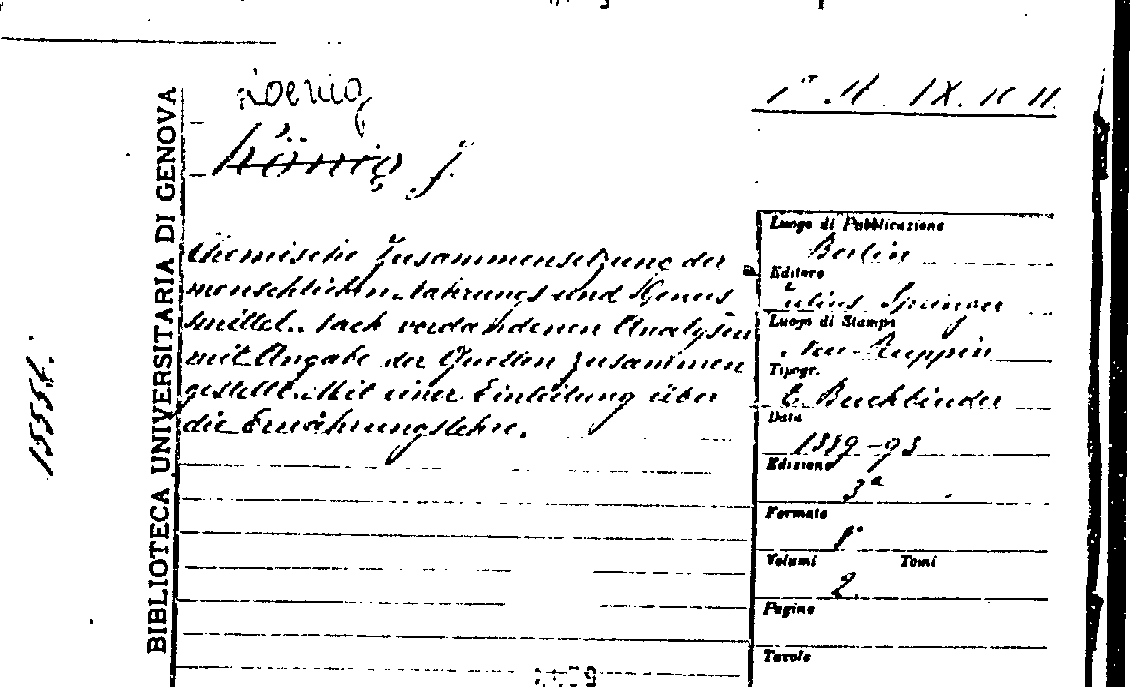 BIBLIOTECA UNIVERSITARIA DI GENOVA
Koenig
König J.
Chemische Zusammensetzung der
menschlichen Nahrungs und Genus
smittel. Nach vordandenen Analysen
mit Angabe der Quellen zusammen
gestellt. Mit einer Einleitung über
die Ernährungslehre.
Luogo di Pubblicazione
Berlin
Editore
Julius Springer
Luogo di Stampa
Neu-Ruppin
Tipogr.
E. Buchbinder
Data
1889-93
Edizione
3ª
Formato
8°
Volumi Tomi
2.
Pagine
Tavole